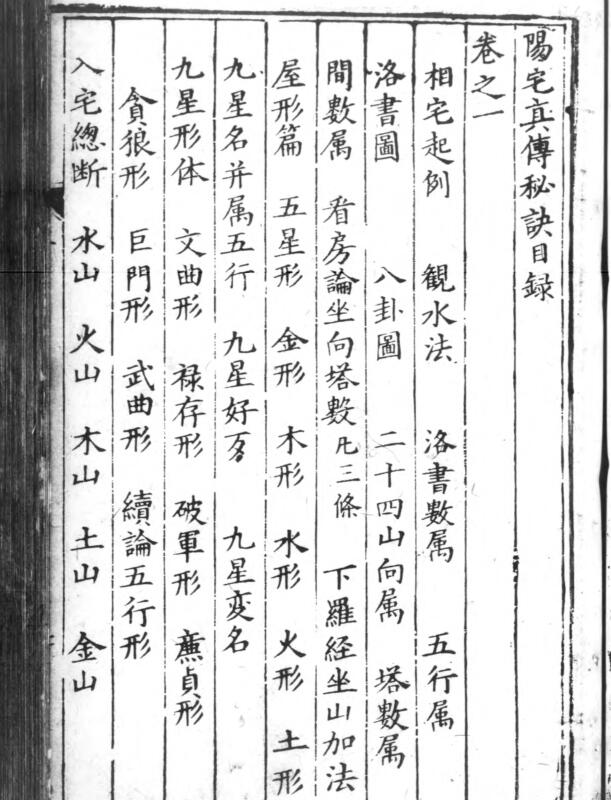 陽宅真傳秘訣目録
卷之一
相宅起例 観水法 洛書數属 五行属
洛書圖 八卦圖 二十四山向属 塔數属
間數属 看房論坐向塔數凡三條 下羅経坐山加法
屋形篇 五星形 金形 木形 水形 火形 土形
九星名并属五行 九星好歹 九星変名
九星形体 文曲形 禄存形 破軍形 亷貞形
貪狼形 巨門形 武曲形 續論五行形
入宅總断 水山 火山 木山 土山 金山